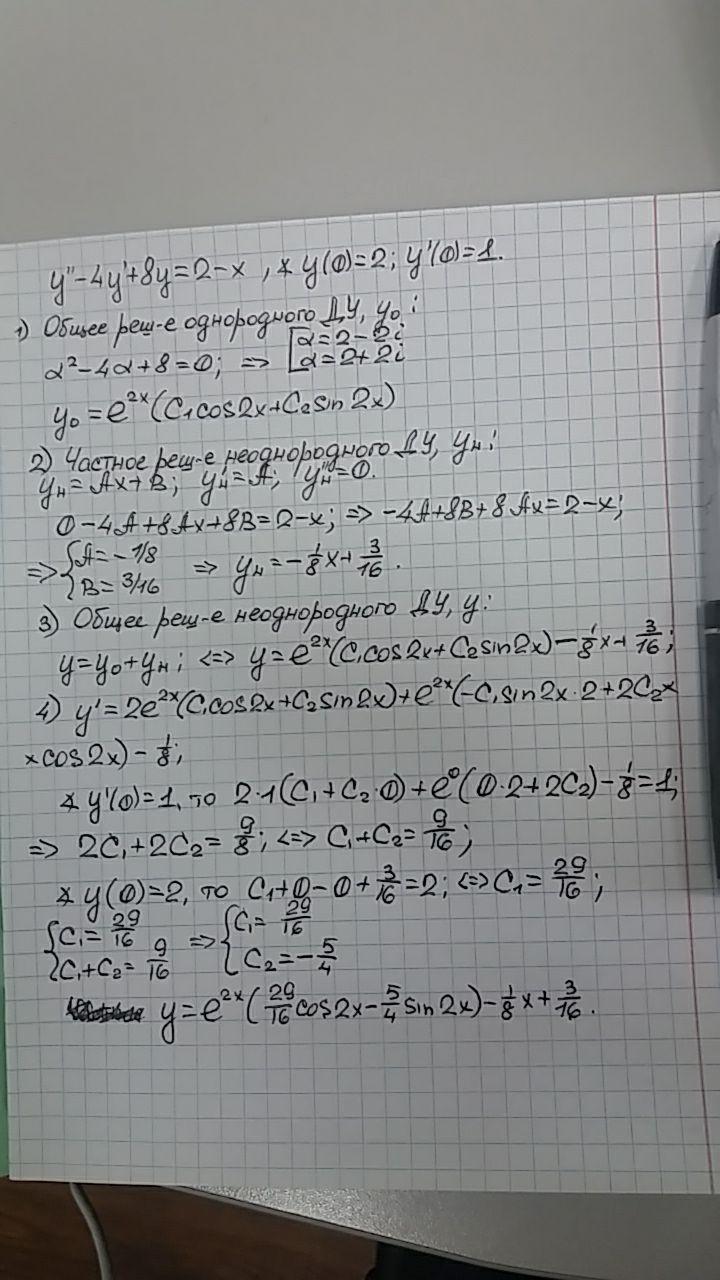 y''-4y'+8y=2-x, ∡ y(0)=2; y'(0)=1.
1) Общее реш-е однородного ДУ, y₀:
α²-4α+8=0; => [α=2-2i
α=2+2i
y₀=e²ˣ(C₁cos2x+C₂sin2x)
2) Частное реш-е неоднородного ДУ, yн:
yн=Ax+B; y'н=A; y''н=0.
0-4A+8Ax+8B=2-x; => -4A+8B+8Ax=2-x;
=> {A=-1/8
B=3/16 => yн=-1/8x+3/16.
3) Общее реш-е неоднородного ДУ, y:
y=y₀+yн; <=> y=e²ˣ(C₁cos2x+C₂sin2x)-1/8x+3/16;
4) y'=2e²ˣ(C₁cos2x+C₂sin2x)+e²ˣ(-C₁sin2x·2+2C₂×
×cos2x)-1/8;
∡ y'(0)=1, то 2·1(C₁+C₂·0)+e⁰(0·2+2C₂)-1/8=1;
=> 2C₁+2C₂=9/8; <=> C₁+C₂=9/16;
∡ y(0)=2, то C₁+0-0+3/16=2; <=> C₁=29/16;
{C₁=29/16 => {C₁=29/16
C₁+C₂=9/16 C₂=-5/4
y=e²ˣ(29/16cos2x-5/4sin2x)-1/8x+3/16.